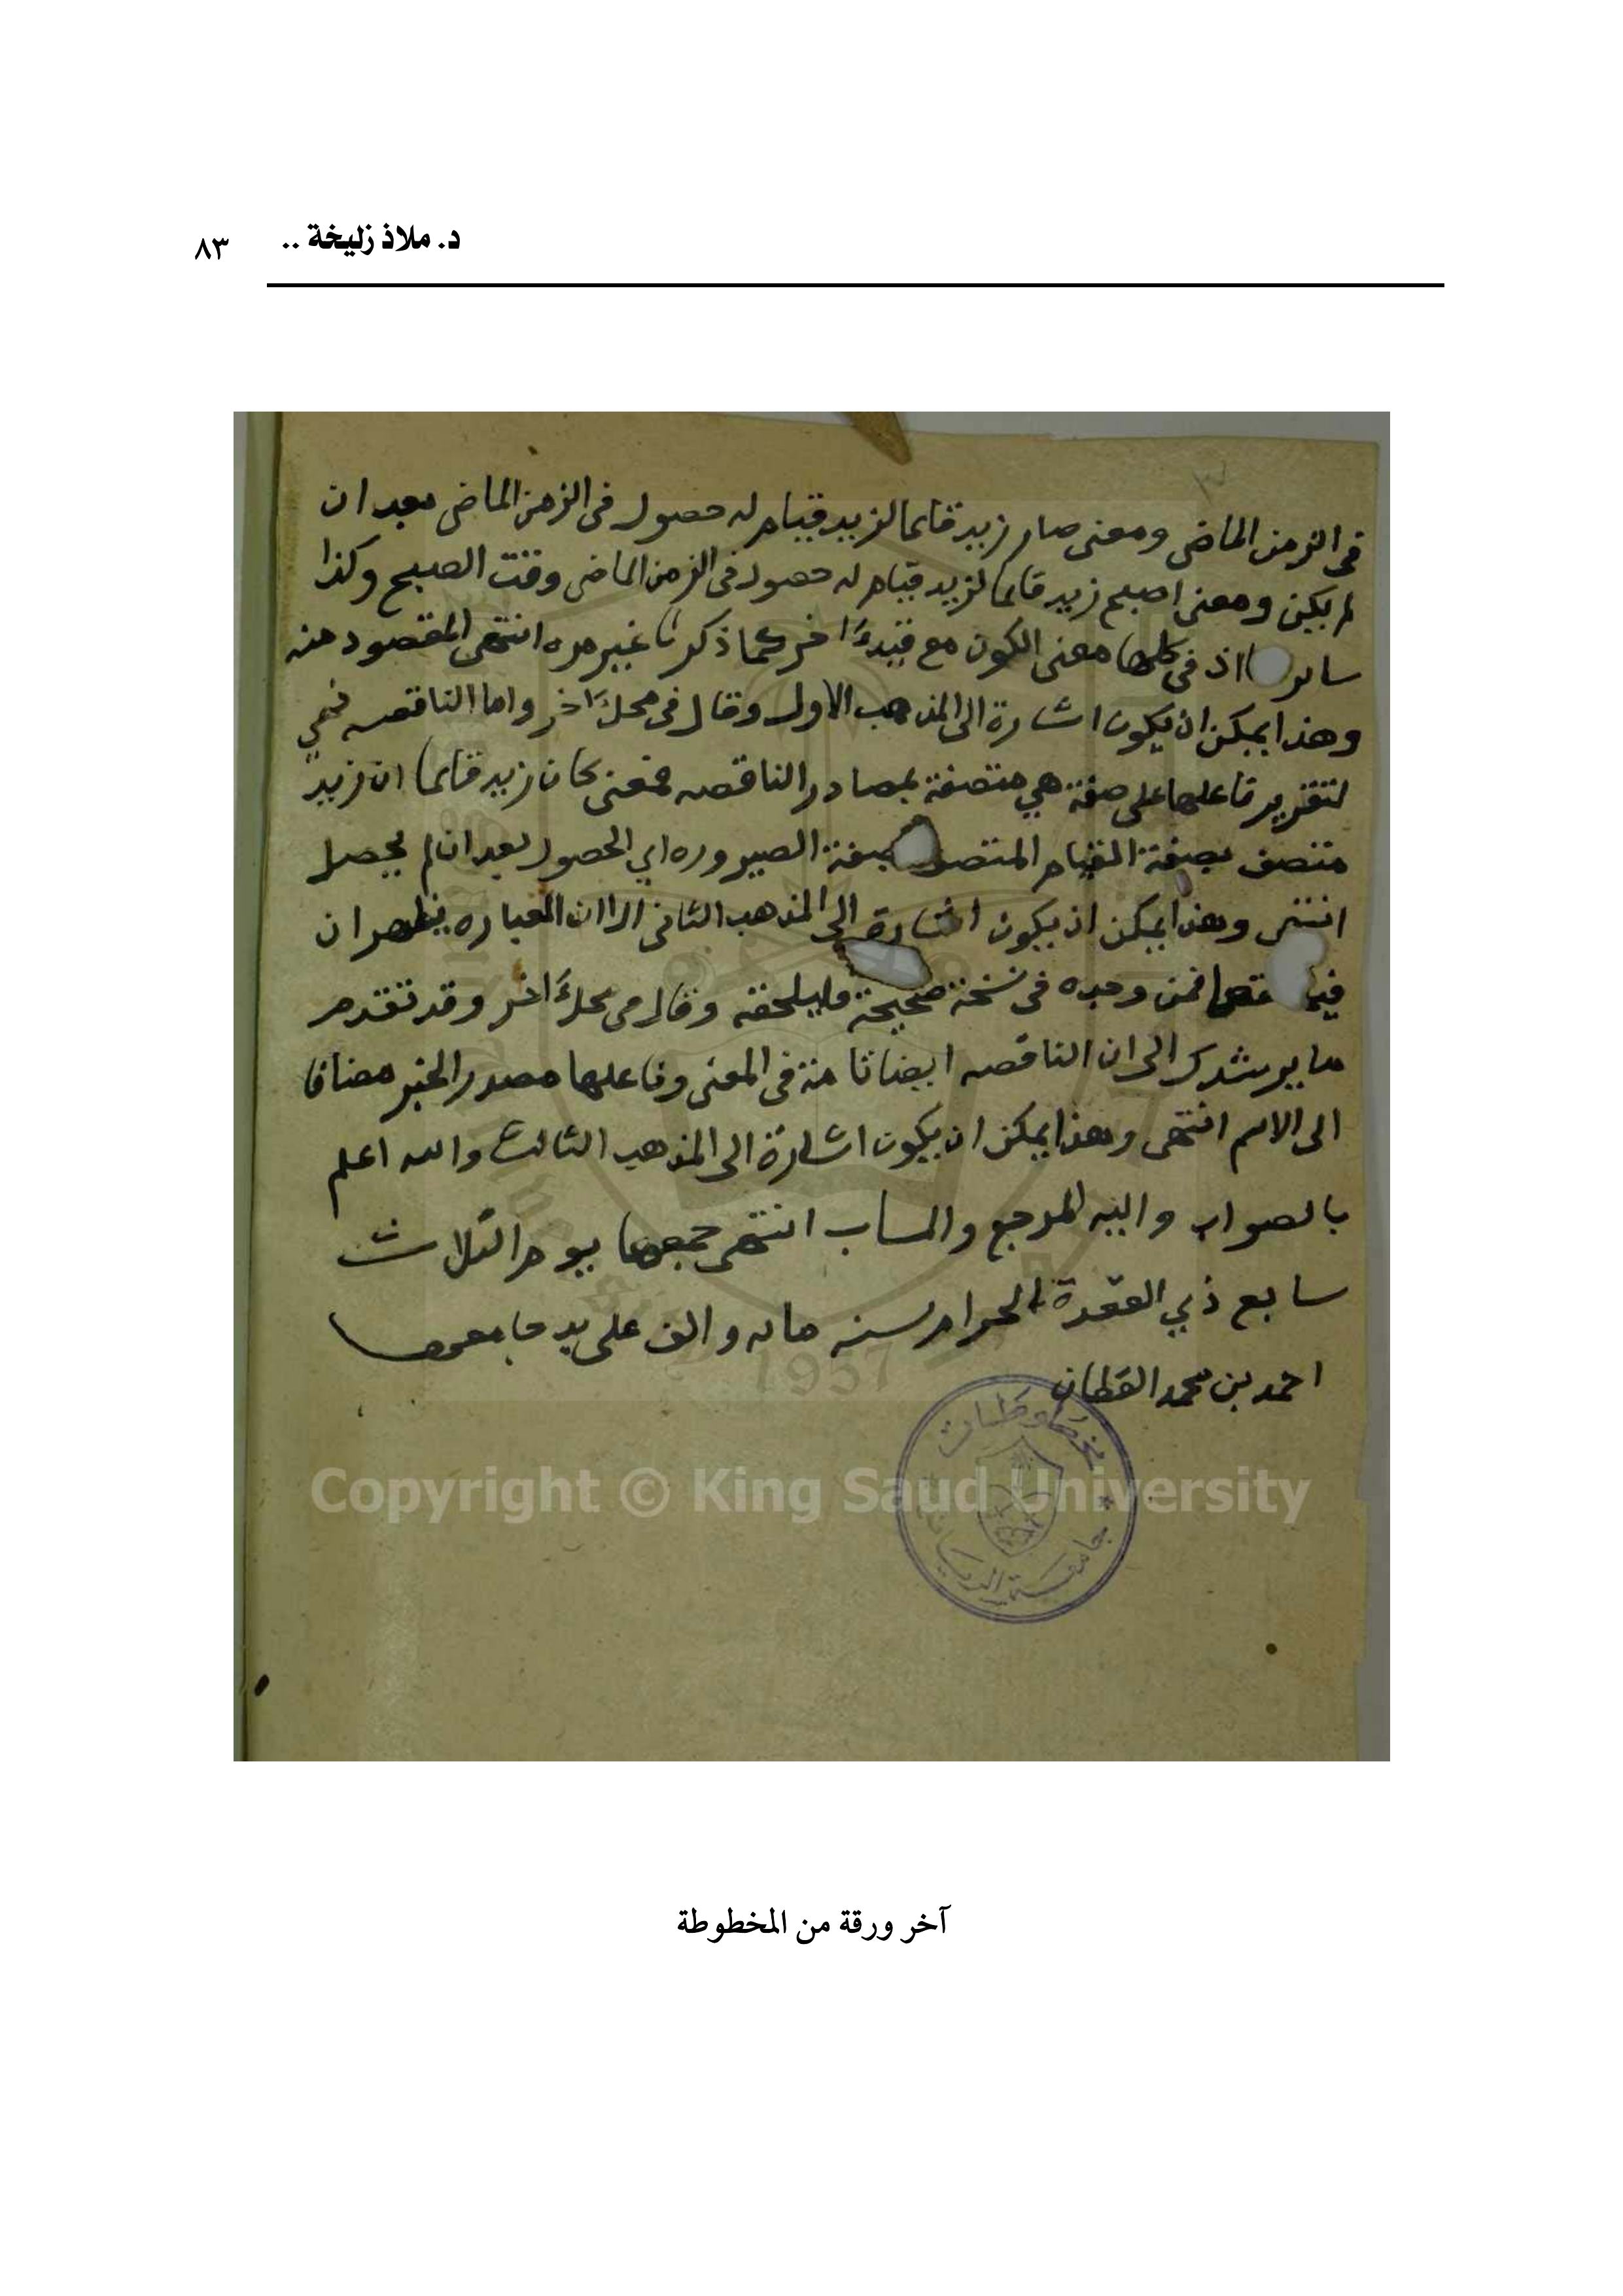 د. ملاذ زليخة .. ٨٣
فى الزمن الماضى ومعنى صار زيد قايما لزيد قيام له حصول فى الزمن الماضى بعد ان
لم يكن ومعنى اصبح زيد قايما لزيد قيام له حصول فى الزمن الماضى وقت الصبح وكذا
ساير اذ فى كلها معنى الكون مع قيد اخر كما ذكرنا غير مره انتهى المقصود منه
وهذا يمكن ان يكون اشارة الى المذهب الاول وقال فى محل اخر واما الناقصه فهي
لتقرير فاعلها على صفة هي متصفة بمصادر الناقصه فمعنى كان زيد قايما ان زيد
متصف بصفة القيام المتصف بصفة الصيروره اي الحصول بعد ان لم يحصل
انتهى وهذا يمكن ان يكون اشارة الى المذهب الثانى الا ان العباره يظهر ان
فيها نقصا فمن وجده فى نسخة صحيحة فليلحقه وقال فى محل اخر وقد تقدم
ما يرشدك الى ان الناقصه ايضا تامة فى المعنى وفاعلها مصدر الخبر مضافا
الى الاسم انتهى وهذا يمكن ان يكون اشارة الى المذهب الثالث والله اعلم
بالصواب واليه المرجع والماب انتهى جمعها يوم الثلاث
سابع ذي القعدة الحرام سنه مايه والف على يد جامعها
احمد بن محمد القطان
مخطوطات
جامعة الرياض
1957
Copyright © King Saud University
آخر ورقة من المخطوطة